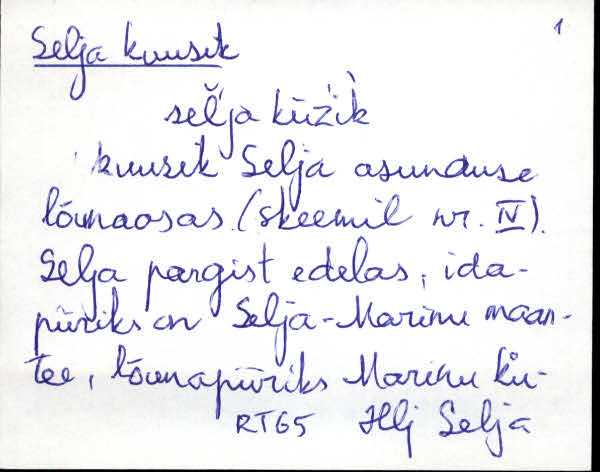 1
Selja kuusik
sel̆'ja kūzi̇̀k
kuusik Selja asunduse
lõunaosas (skeemil nr. IV).
Selja pargist edelas, ida-
piiriks on Selja-Marinu maan-
tee, lõunapiiriks Marinu kü-
RT65 Hlj Selja